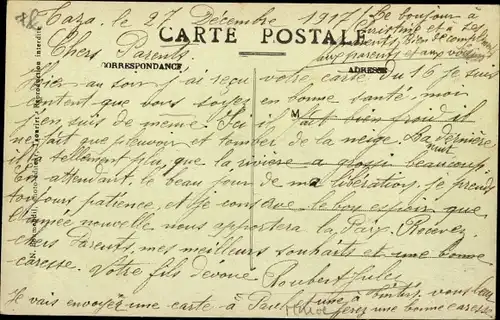 Taza, le 27 Décembre 1917
Le bonjour à
Christine et à ses
parents, bien
aux parents et aux voisins
CARTE POSTALE
Chers Parents
CORRESPONDANCE
ADRESSE
Hier au soir j'ai reçu votre carte du 16 je suis
content que vous soyez en bonne santé, moi
j'en suis de meme. Ici il fait bien froid il
M
ne fait que pleuvoir et tomber de la neige. La dernière
nuit
il a tellement plu, que la rivière a grossi beaucoup
En attendant, le beau jour de ma libération, je prends
toujours patience, et je conserve le bon espoir que
l'année nouvelle nous apportera la Paix. Recevez
chers Parents, mes meilleurs souhaits et une bonne
caresse. Votre fils dévoué Roubert Jules
Je vais envoyer une carte à une à vous leur
ferez une bonne caresse
Reproduction interdite